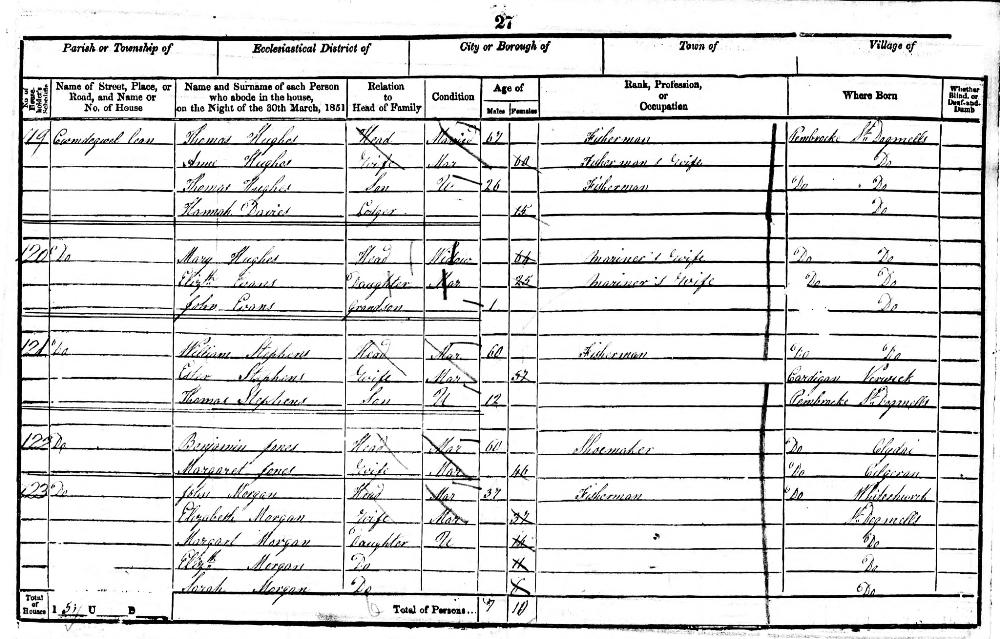 27
Parish or Township of Ecclesiastical District of City or Borough of Town of Village of
No. of House-holder's Schedule Name of Street, Place, or Road, and Name or No. of House Name and Surname of each Person who abode in the house, on the Night of the 30th March, 1851 Relation to Head of Family Condition Age of Males Females Rank, Profession, or Occupation Where Born Whether Blind, or Deaf-and-Dumb
119 Thomas Hughes Head Married 67 Fisherman Pembroke St Dogmells
Anne Hughes Wife Mar 60 Fisherman's Wife Do
Thomas Hughes Son U 26 Fisherman Do Do
Hannah Davies Lodger 15 Do
120 Do Mary Hughes Head Widow Mariner's Wife Do Do
Elizth Evans Daughter Mar 25 Mariner's Wife Do Do
John Evans Grandson 1 Do
121 Do William Stephens Head Mar 60 Fisherman Do Do
Esther Stephens Wife Mar 57 Cardigan Verwick
Thomas Stephens Son U 12 Pembroke St Dogmells
122 Do Benjamin Jones Head Mar 60 Shoemaker Do Clydai
Margaret Jones Wife Mar 66 Do Cilgeran
123 Do John Morgan Head Mar 37 Fisherman Do Whitechurch
Elizabeth Morgan Wife Mar 37 St Dogmells
Margaet Morgan Daughter U Do
Elizth Morgan Do 11 Do
Sarah Morgan Do 6 Do
Total of Houses I 5 U B Total of Persons... 7 10